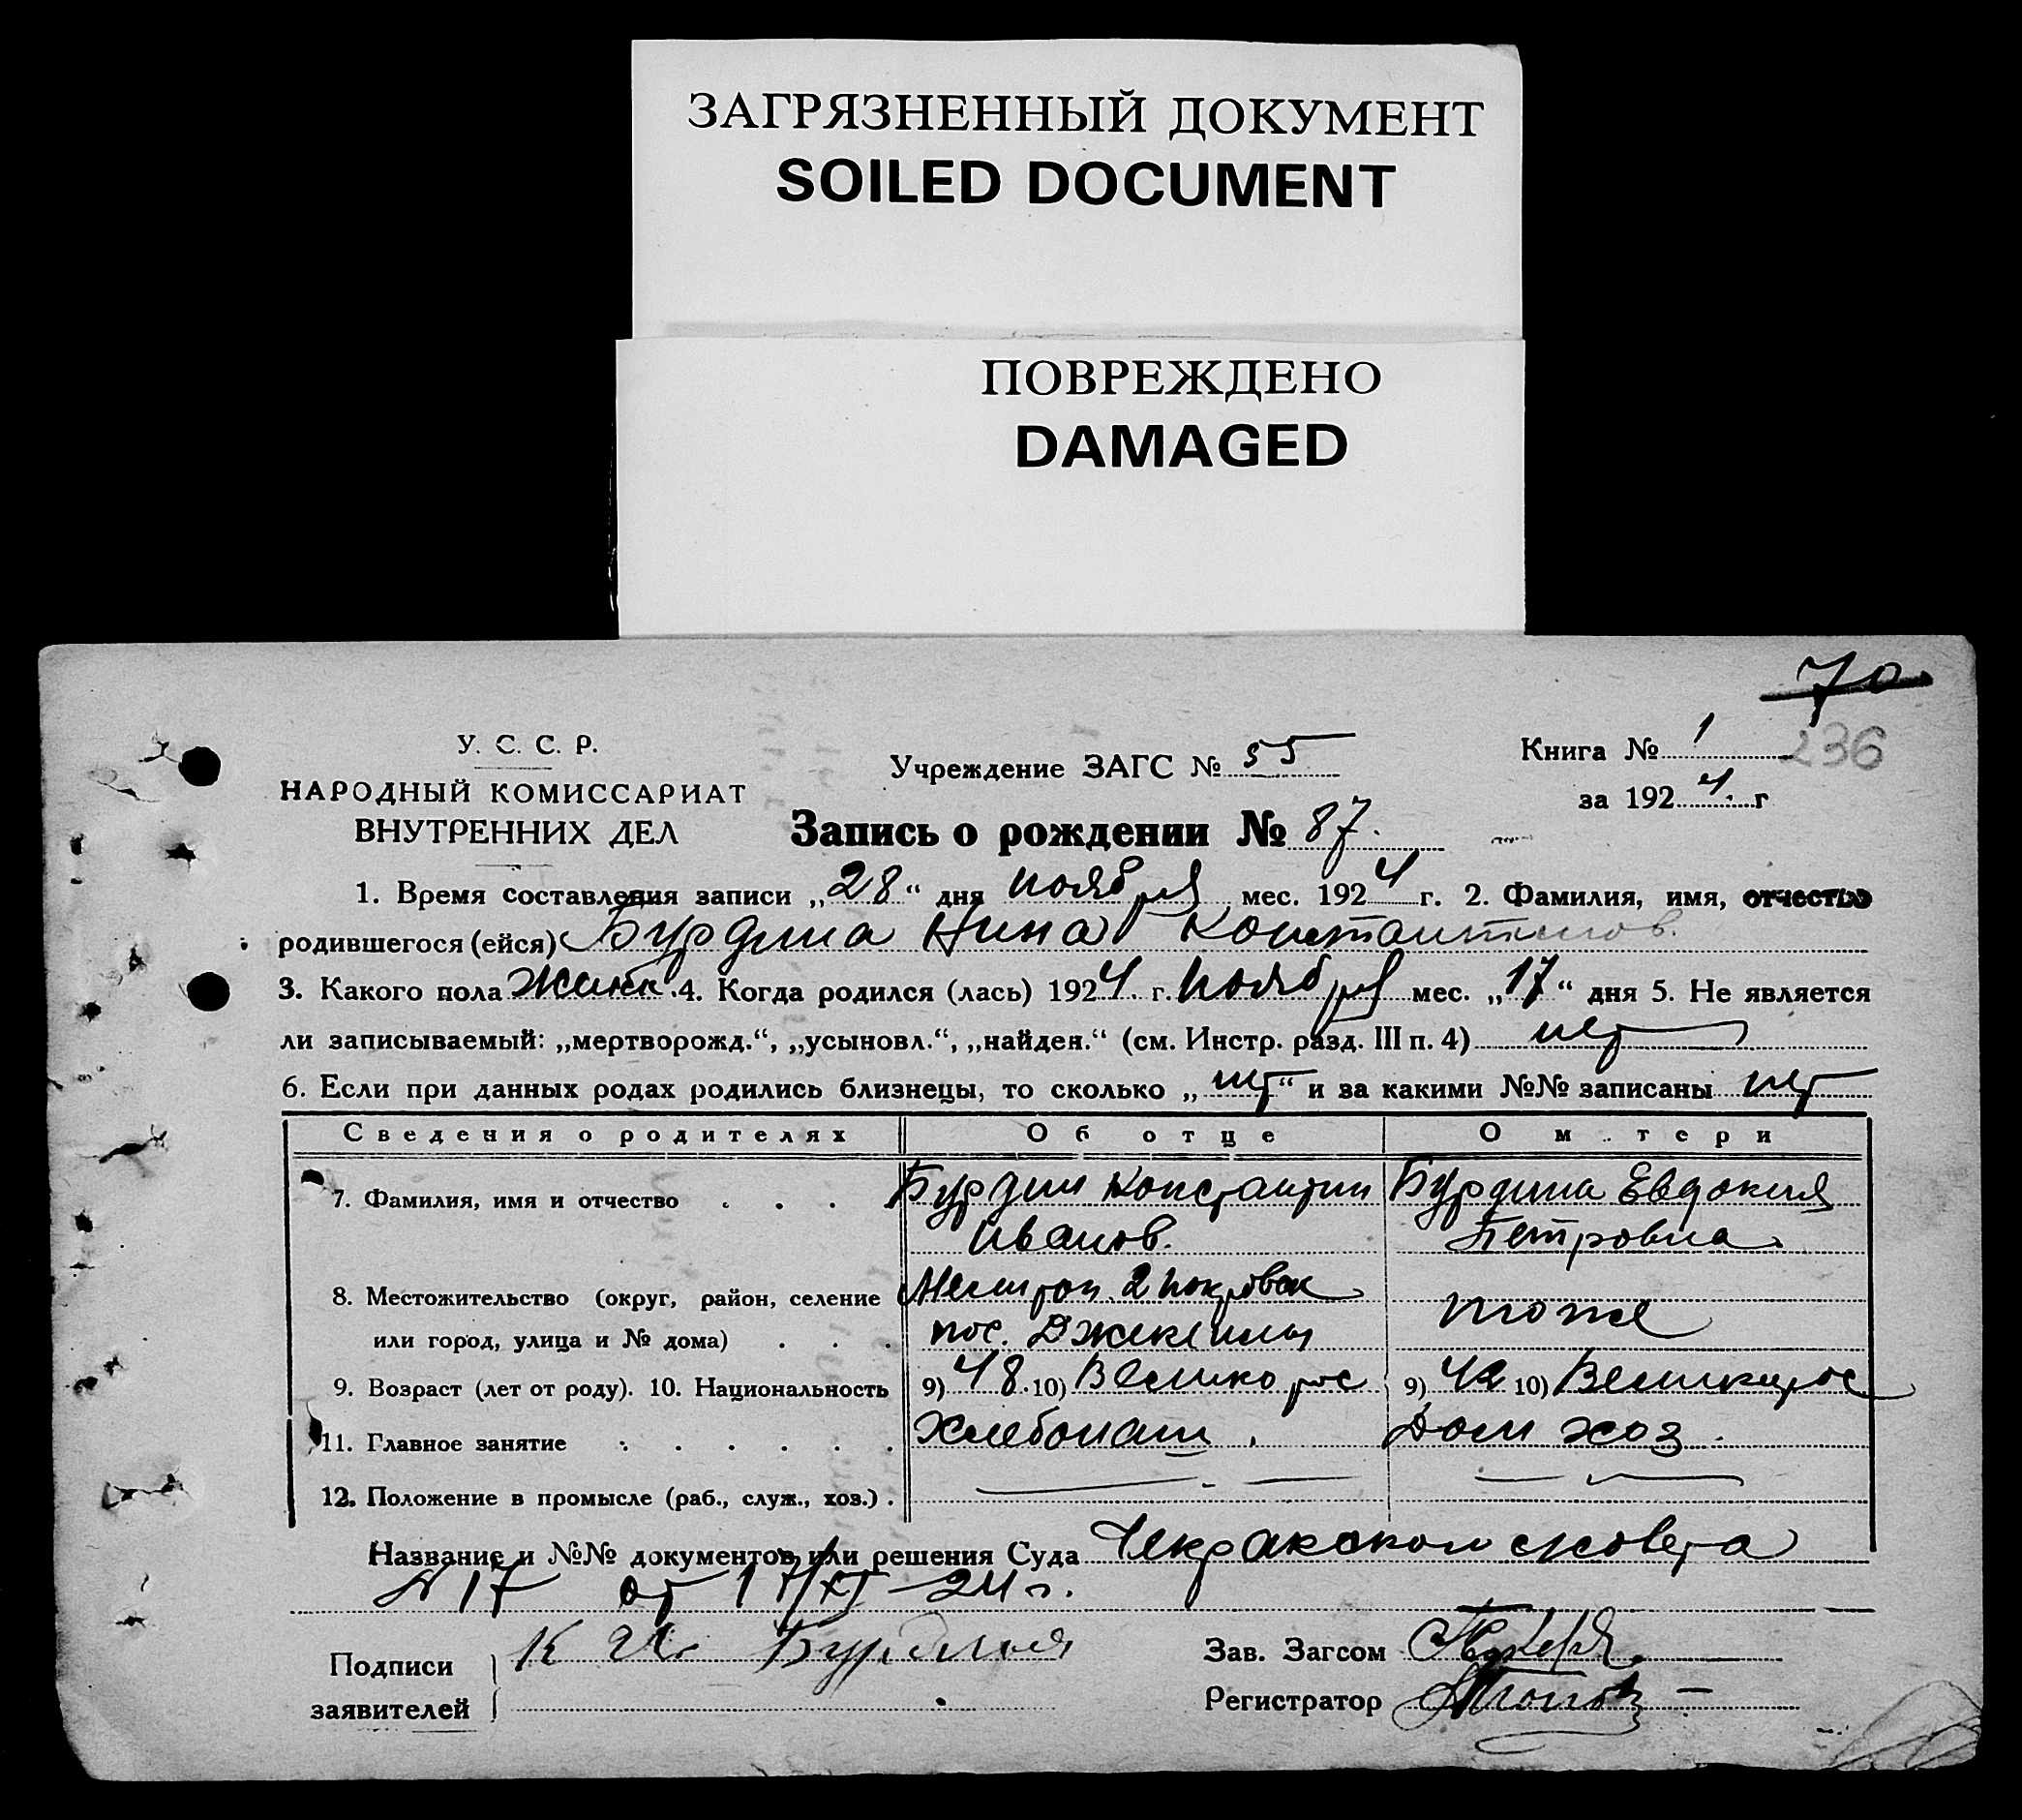 ЗАГРЯЗНЕННЫЙ ДОКУМЕНТ
SOILED DOCUMENT
ПОВРЕЖДЕНО
DAMAGED
70
У. С. С. Р.
НАРОДНЫЙ КОМИССАРИАТ
ВНУТРЕННИХ ДЕЛ
Учреждение ЗАГС № 55
Книга № 1
236
за 1924 г
Запись о рождении № 87.
1. Время составления записи „28“ дня ноября мес. 1924 г. 2. Фамилия, имя, отчество
родившегося (ейся) Бурдина Нина Константинов.
3. Какого пола женск. 4. Когда родился (лась) 1924 г. ноября мес. „17“ дня 5. Не является
ли записываемый: „мертворожд.“, „усыновл.“, „найден.“ (см. Инстр. разд. III п. 4) нет
6. Если при данных родах родились близнецы, то сколько „нет“ и за какими №№ записаны нет
Сведения о родителях Об отце О м. тери
7. Фамилия, имя и отчество . . . Бурдин Константин Бурдина Евдокия
Иванов. Петровна
8. Местожительство (округ, район, селение 2 Покровск
или город, улица и № дома) . . . пос. тоже
9. Возраст (лет от роду). 10. Национальность 9) 48. 10) Великорос 9) 42 10) Великорос
11. Главное занятие . . . . . . Хлебопаш. Дом хоз.
12. Положение в промысле (раб., служ., хоз.) .
Название и №№ документов или решения Суда Чекракском сковета
№ 17 от 17/XI-24 г.
Подписи К И Бурдин
заявителей
Зав. Загсом
Регистратор